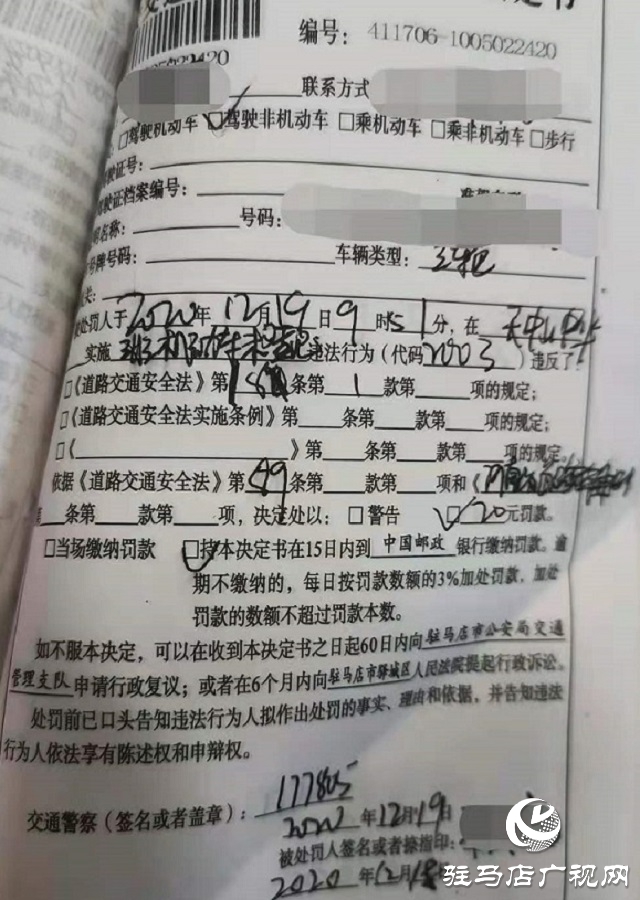 编号: 411706-1005022420
05022420
联系方式
□驾驶机动车 ☑驾驶非机动车 □乘机动车 □乘非机动车 □步行
驾驶证号:
驾驶证档案编号:
名称: 号码:
号牌号码: 车辆类型:
被处罚人于2020年12月19日9时51分,在
实施 违法行为(代码2003)违反了:
□《道路交通安全法》第 条第1款第 项的规定;
□《道路交通安全法实施条例》第 条第 款第 项的规定;
□《 》第 条第 款第 项的规定。
依据《道路交通安全法》第89条第 款第 项和《
第 条第 款第 项,决定处以:□警告 ☑20元罚款。
□当场缴纳罚款 ☑持本决定书在15日内到 中国邮政 银行缴纳罚款。逾
期不缴纳的,每日按罚款数额的3%加处罚款,加处
罚款的数额不超过罚款本数。
如不服本决定,可以在收到本决定书之日起60日内向驻马店市公安局交通
管理支队申请行政复议;或者在6个月内向驻马店市驿城区人民法院提起行政诉讼。
处罚前已口头告知违法行为人拟作出处罚的事实、理由和依据,并告知违法
行为人依法享有陈述权和申辩权。
交通警察(签名或者盖章):
2020年12月19日
被处罚人签名或者捺指印:
2020年12月
驻马店广视网